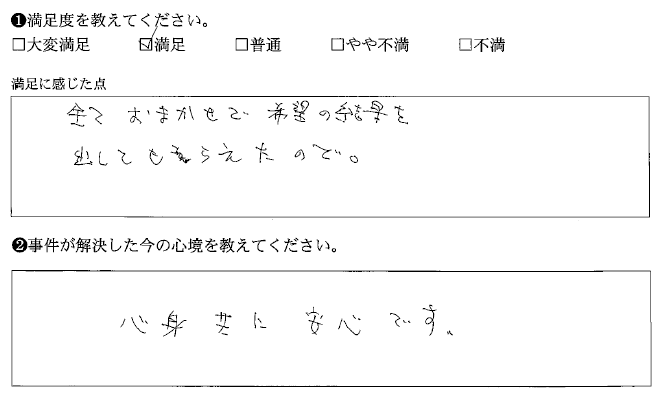 ❶満足度を教えてください。
□大変満足 ☑満足 □普通 □やや不満 □不満
満足に感じた点
全て おまかせで 希望の結果を
出してもらえたので。
❷事件が解決した今の心境を教えてください。
心身共に 安心です。